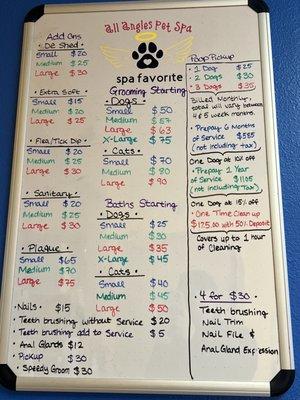 all Angles Pet Spa
spa favorite
Add Ons
• De Shed •
Small $20
Medium $25
Large $30
• Extra Soft •
Small $15
Medium $20
Large $25
• Flea/Tick Dip •
Small $20
Medium $25
Large $30
• Sanitary •
Small $20
Medium $25
Large $30
• Plaque •
Small $65
Medium $70
Large $75
• Nails • $15
• Teeth brushing without Service $20
• Teeth brushing add to Service $5
• Anal Glands $12
• Pickup $30
• Speedy Groom $30
Grooming Starting
• Dogs •
Small $50
Medium $57
Large $63
X-Large $75
• Cats •
Small $70
Medium $80
Large $90
Baths Starting
• Dogs •
Small $25
Medium $30
Large $35
X-Large $45
• Cats •
Small $40
Medium $45
Large $50
Poop Pickup
• 1 Dog $25
• 2 Dogs $30
• 3 Dogs $35
Billed Monthly
total will vary between
4 & 5 week months.
• Prepay 6 Months
of Service $585
(not including tax)
One Dog at 10% off
• Prepay 1 Year
of Service $1105
(not including Tax)
One Dog at 15% off
• One Time Clean up
$175.00 with 50% Deposit
Covers up to 1 hour
of Cleaning
4 for $30 •
Teeth brushing
Nail Trim
Nail File &
Anal Gland Expression